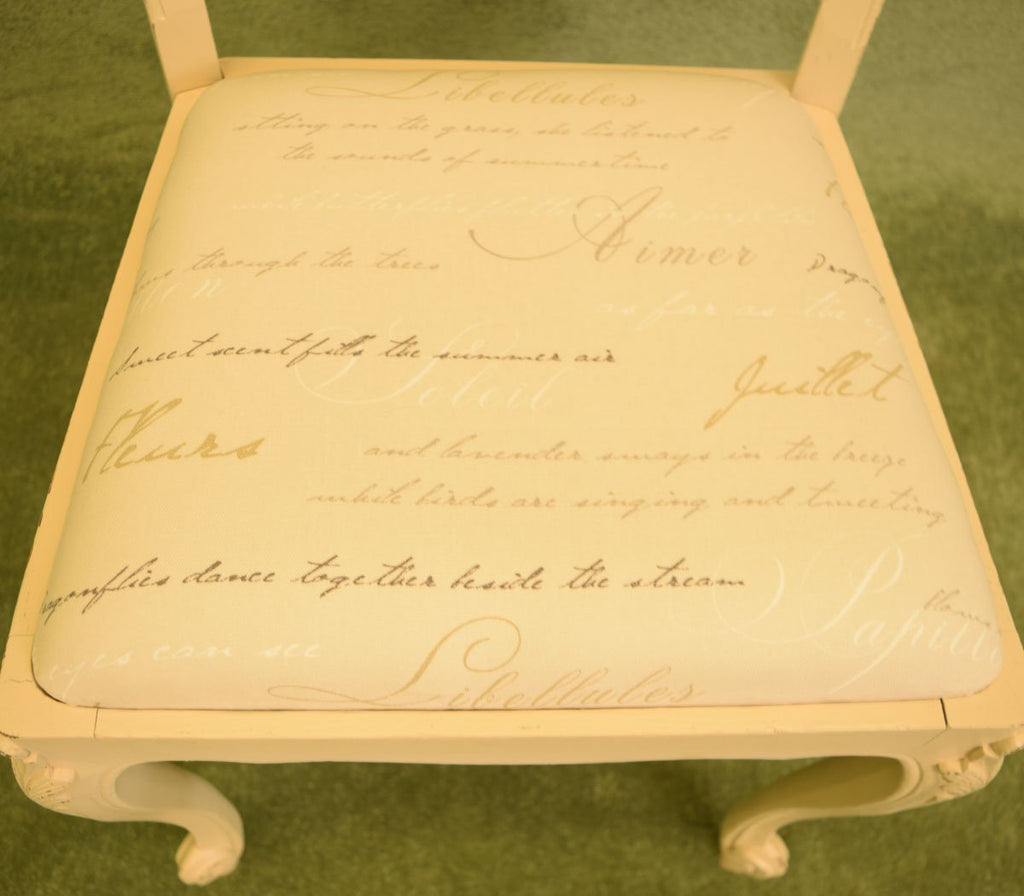 Libellules
sitting on the grass, she listened to
the sounds of summertime
Aimer
through the trees
Dragon
as far as the
sweet scent fills the summer air
Soleil
Juillet
Fleurs
and lavender sways in the breeze
while birds are singing and tweeting
dragonflies dance together beside the stream
Papill
eyes can see
Libellules